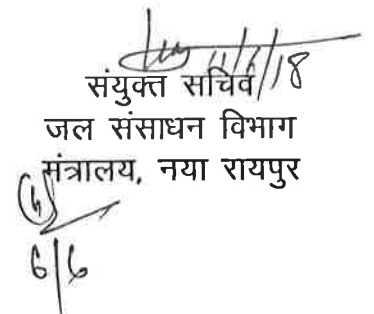 11/6/18
संयुक्त सचिव
जल संसाधन विभाग
मंत्रालय, नया रायपुर
6/6